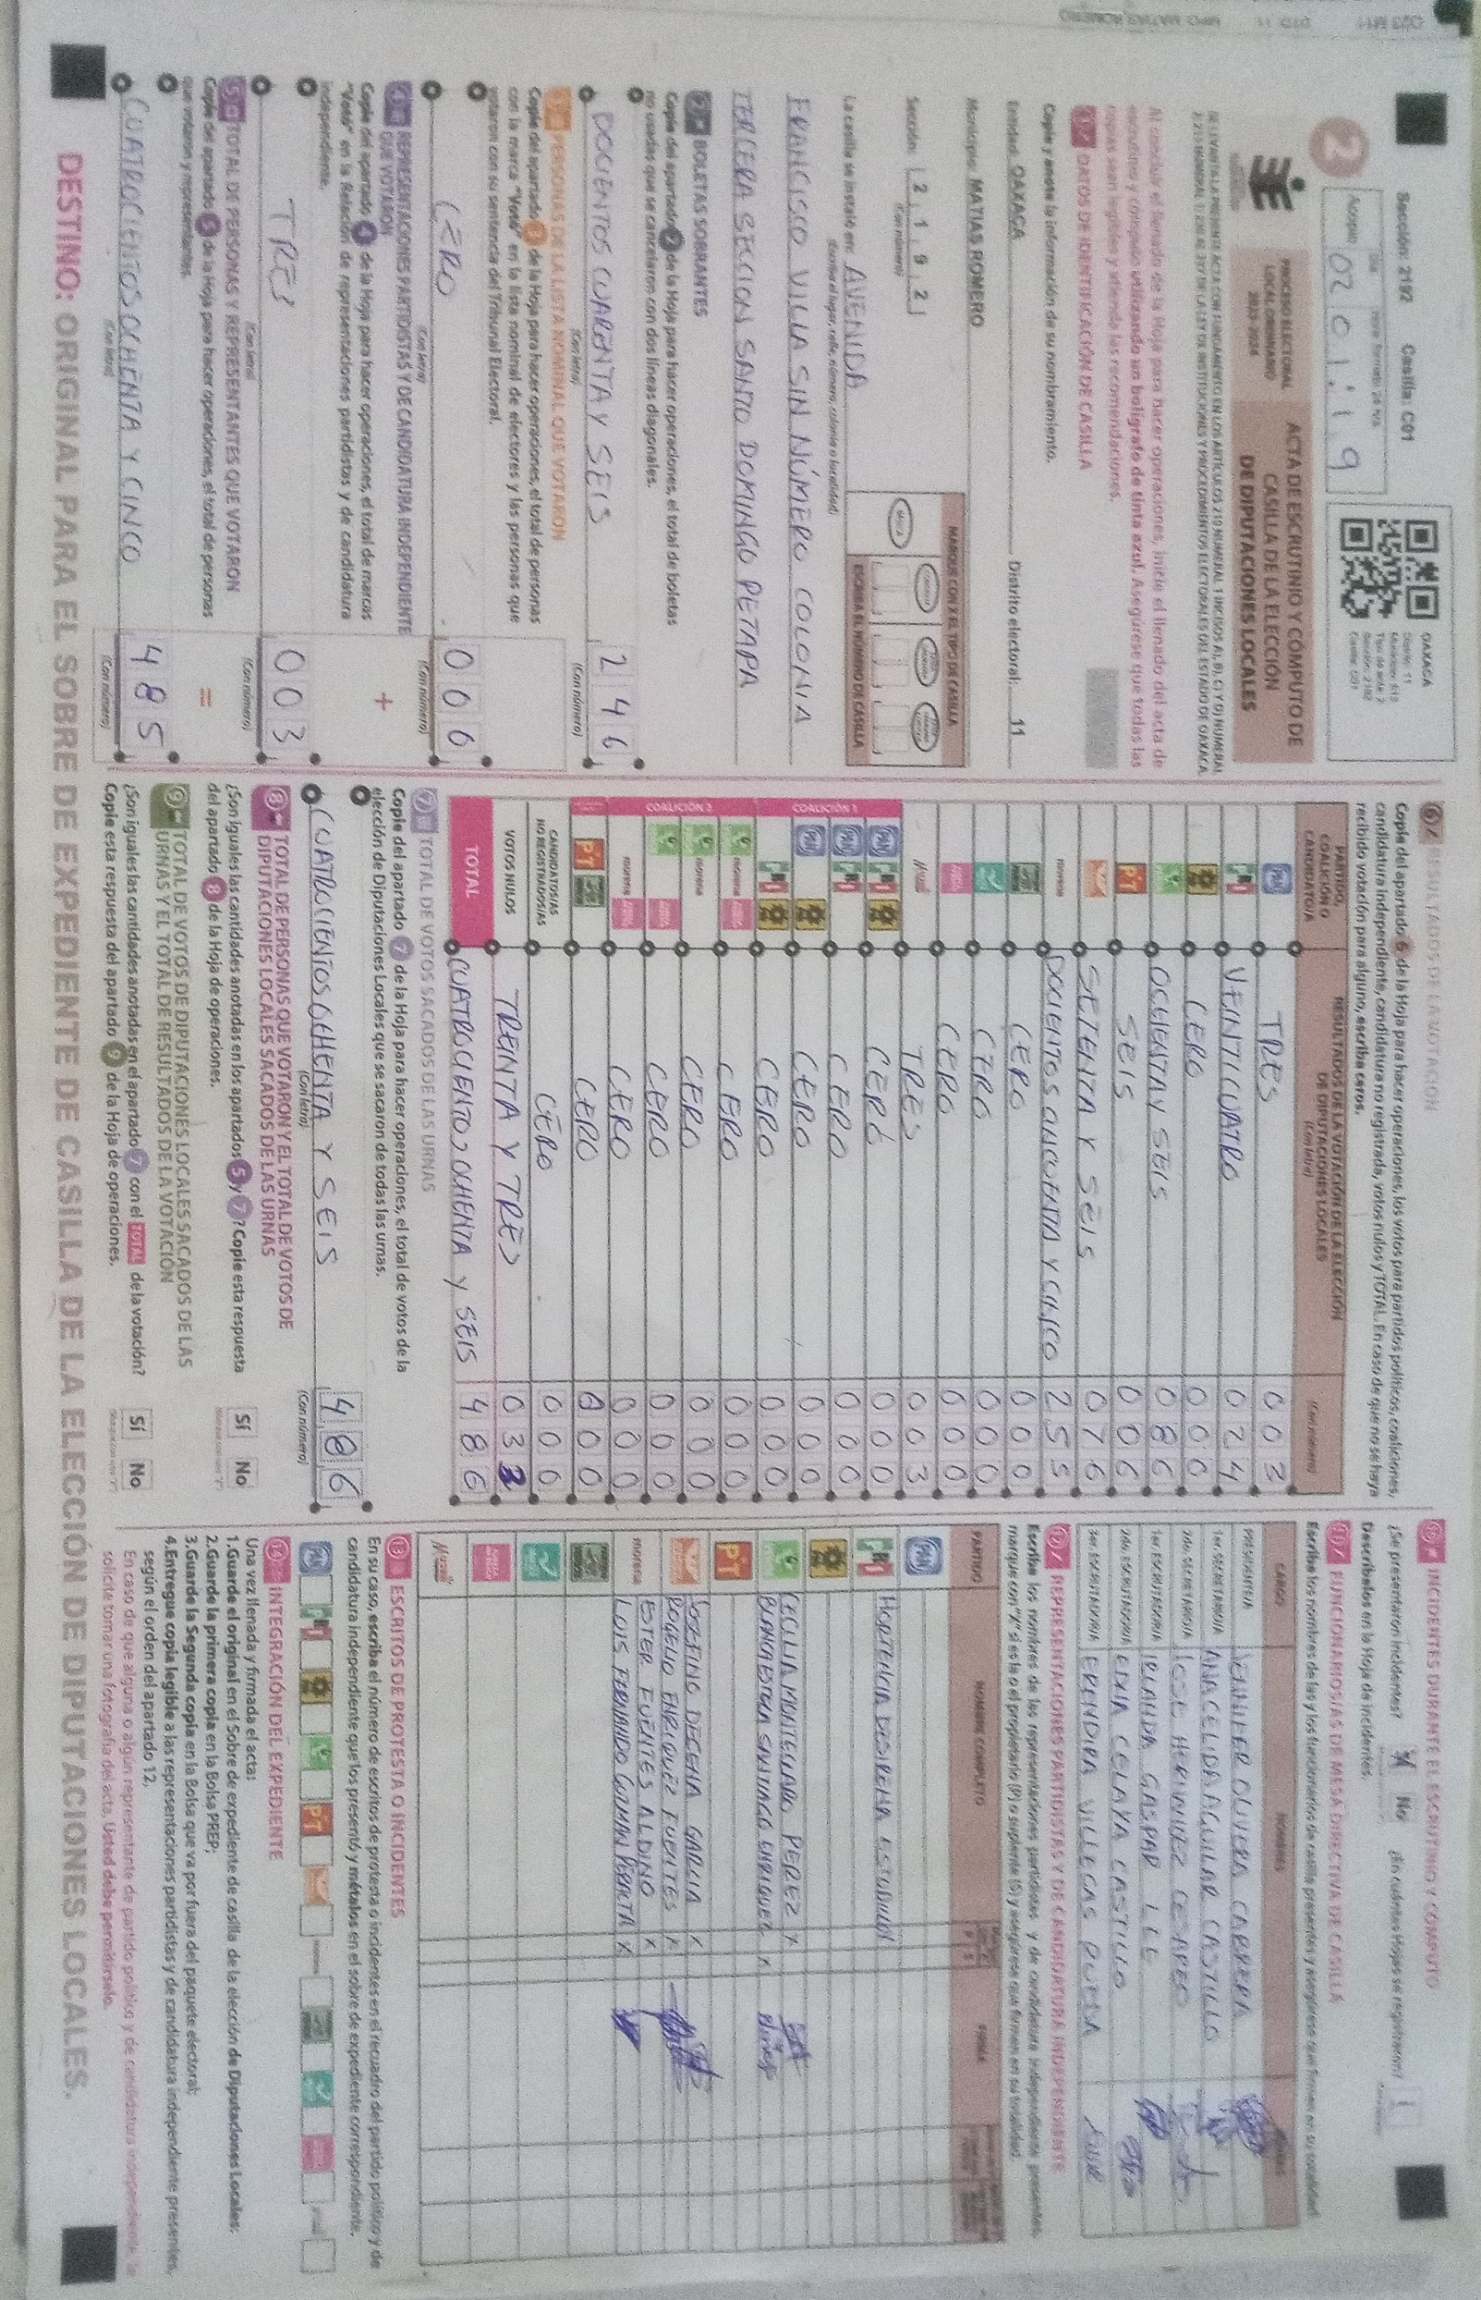 Sección: 2192 Casilla: C01
Acopio 02 01:19
OAXACA
Distrito: 11
Tipo de acta: 2
Sección: 2192
Casilla: C01
PROCESO ELECTORAL LOCAL ORDINARIO 2023-2024
ACTA DE ESCRUTINIO Y CÓMPUTO DE CASILLA DE LA ELECCIÓN DE DIPUTACIONES LOCALES
Al concluir el llenado de la Hoja para hacer operaciones, inicie el llenado del acta de
escrutinio y cómputo utilizando un bolígrafo de tinta azul. Asegúrese que todas las
copias sean legibles y atienda las recomendaciones.
1 DATOS DE IDENTIFICACIÓN DE CASILLA
Copie y anote la información de su nombramiento.
Entidad: OAXACA Distrito electoral: 11
Municipio: MATIAS ROMERO
Sección: 2 1 9 2
(Con número)
MARQUE CON X EL TIPO DE CASILLA
ESCRIBA EL NÚMERO DE CASILLA
La casilla se instaló en: AVENIDA
(Escriba el lugar, calle, número, colonia o localidad)
FRANCISCO VILLA SIN NÚMERO COLONIA
TERCERA SECCION SANTO DOMINGO PETAPA
2 BOLETAS SOBRANTES
Copie del apartado 2 de la Hoja para hacer operaciones, el total de boletas
no usadas que se cancelaron con dos líneas diagonales.
DOCIENTOS CUARENTA Y SEIS 246
(Con letra) (Con número)
3 PERSONAS DE LA LISTA NOMINAL QUE VOTARON
Copie del apartado 3 de la Hoja para hacer operaciones, el total de personas
con la marca "Votó" en la lista nominal de electores y las personas que
votaron con su sentencia del Tribunal Electoral.
CERO 000
(Con letra) (Con número)
4 REPRESENTACIONES PARTIDISTAS Y DE CANDIDATURA INDEPENDIENTE
QUE VOTARON +
Copie del apartado 4 de la Hoja para hacer operaciones, el total de marcas
"Votó" en la Relación de representaciones partidistas y de candidatura
independiente.
TRES 003
(Con letra) (Con número)
5 TOTAL DE PERSONAS Y REPRESENTANTES QUE VOTARON
Copie del apartado 5 de la Hoja para hacer operaciones, el total de personas
que votaron y representantes. =
CUATROCIENTOS OCHENTA Y CINCO 485
(Con letra) (Con número)
6 RESULTADOS DE LA VOTACIÓN
Copie del apartado 6 de la Hoja para hacer operaciones, los votos para partidos políticos, coaliciones,
candidatura independiente, candidatura no registrada, votos nulos y TOTAL. En caso de que no se haya
recibido votación para alguno, escriba ceros.
PARTIDO, COALICIÓN O CANDIDATO/A
RESULTADOS DE LA VOTACIÓN DE LA ELECCIÓN DE DIPUTACIONES LOCALES
(Con letra) (Con número)
PAN TRES 003
PRI VEINTICUATRO 024
CERO 000
OCHENTA Y SEIS 086
PT SEIS 006
SETENTA Y SEIS 076
morena DOCIENTOS CINCUENTA Y CINCO 255
CERO 000
CERO 000
CERO 000
TRES 003
COALICIÓN 1
PAN PRI CERO 000
PAN PRI CERO 000
PAN CERO 000
PRI CERO 000
COALICIÓN 2
morena CERO 000
morena CERO 000
CERO 000
morena CERO 000
PT CERO 000
CANDIDATOS/AS NO REGISTRADOS/AS CERO 000
VOTOS NULOS TREINTA Y TRES 033
TOTAL CUATROCIENTOS OCHENTA Y SEIS 486
7 TOTAL DE VOTOS SACADOS DE LAS URNAS
Copie del apartado 7 de la Hoja para hacer operaciones, el total de votos de la
elección de Diputaciones Locales que se sacaron de todas las urnas.
CUATROCIENTOS OCHENTA Y SEIS 486
(Con letra) (Con número)
8 TOTAL DE PERSONAS QUE VOTARON Y EL TOTAL DE VOTOS DE
DIPUTACIONES LOCALES SACADOS DE LAS URNAS
¿Son iguales las cantidades anotadas en los apartados 5 y 7? Copie esta respuesta
del apartado 8 de la Hoja de operaciones. Sí No
9 TOTAL DE VOTOS DE DIPUTACIONES LOCALES SACADOS DE LAS
URNAS Y EL TOTAL DE RESULTADOS DE LA VOTACIÓN
¿Son iguales las cantidades anotadas en el apartado 7 con el TOTAL de la votación?
Copie esta respuesta del apartado 9 de la Hoja de operaciones. Sí No
10 INCIDENTES DURANTE EL ESCRUTINIO Y CÓMPUTO
¿Se presentaron incidentes? No ¿En cuántas Hojas se registraron? 1
Descríbalos en la Hoja de incidentes.
11 FUNCIONARIOS/AS DE MESA DIRECTIVA DE CASILLA
Escriba los nombres de las y los funcionarios de casilla presentes y asegúrese que firmen en su totalidad.
CARGO NOMBRES
PRESIDENTE/A JENNIFER OLIVERA CABRERA
1er. SECRETARIO/A ANA CELIDA AGUILAR CASTILLO
2do. SECRETARIO/A JOSE HERNANDEZ CESAREO
1er. ESCRUTADOR/A IRLANDA GASPAR LEE
2do. ESCRUTADOR/A EDIA CELAYA CASTILLO
3er. ESCRUTADOR/A ERENDIRA VILLECAS
12 REPRESENTACIONES PARTIDISTAS Y DE CANDIDATURA INDEPENDIENTE
Escriba los nombres de las representaciones partidistas y de candidatura independiente presentes,
marque con "X" si es la o el propietario (P) o suplente (S) y asegúrese que firmen en su totalidad.
PARTIDO NOMBRE COMPLETO FIRMA
PAN
PRI HORTENCIA DESIREHA ESTUDILLO
CECILIA MONTECLARO PEREZ X
BLANCA ESTELA SANTIAGO ENRIQUEZ X
PT
JOSEFINO DECENA GARCIA X
ROGELIO ENRIQUEZ FUENTES X
morena ESTER FUENTES ALDINO X
LUIS FERNANDO GUZMAN PERALTA X
13 ESCRITOS DE PROTESTA O INCIDENTES
En su caso, escriba el número de escritos de protesta o incidentes en el recuadro del partido político y de
candidatura independiente que los presentó y métalos en el sobre de expediente correspondiente.
14 INTEGRACIÓN DEL EXPEDIENTE
Una vez llenada y firmada el acta:
1. Guarde el original en el Sobre de expediente de casilla de la elección de Diputaciones Locales;
2. Guarde la primera copia en la Bolsa PREP;
3. Guarde la Segunda copia en la Bolsa que va por fuera del paquete electoral;
4. Entregue copia legible a las representaciones partidistas y de candidatura independiente presentes,
según el orden del apartado 12.
En caso de que alguna o algún representante de partido político y de candidatura independiente, le
solicite tomar una fotografía del acta, Usted debe permitírselo.
DESTINO: ORIGINAL PARA EL SOBRE DE EXPEDIENTE DE CASILLA DE LA ELECCIÓN DE DIPUTACIONES LOCALES.